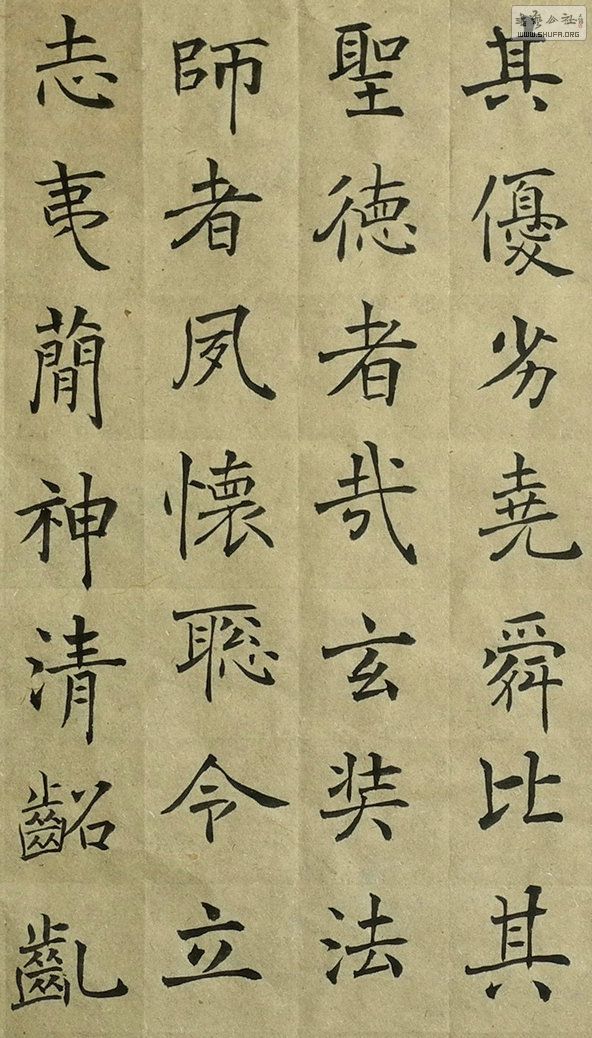 其優劣堯舜比其
聖德者哉玄奘法
師者夙懷聡令立
志夷簡神清齠齔
WWW.SHUFA.ORG